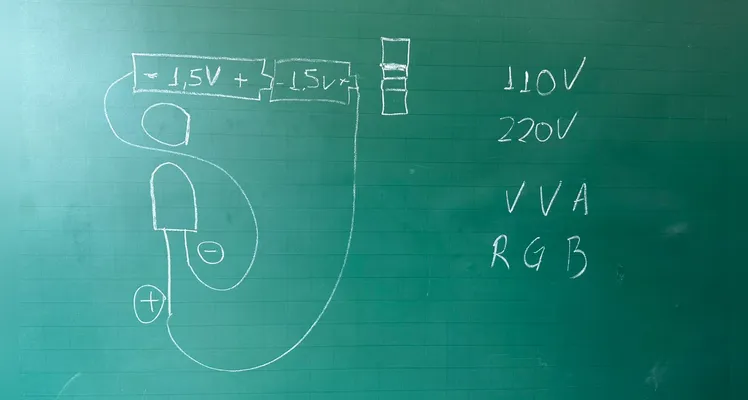 - 1,5V + - 1,5V +
110V
220V
V V A
R G B
-
+